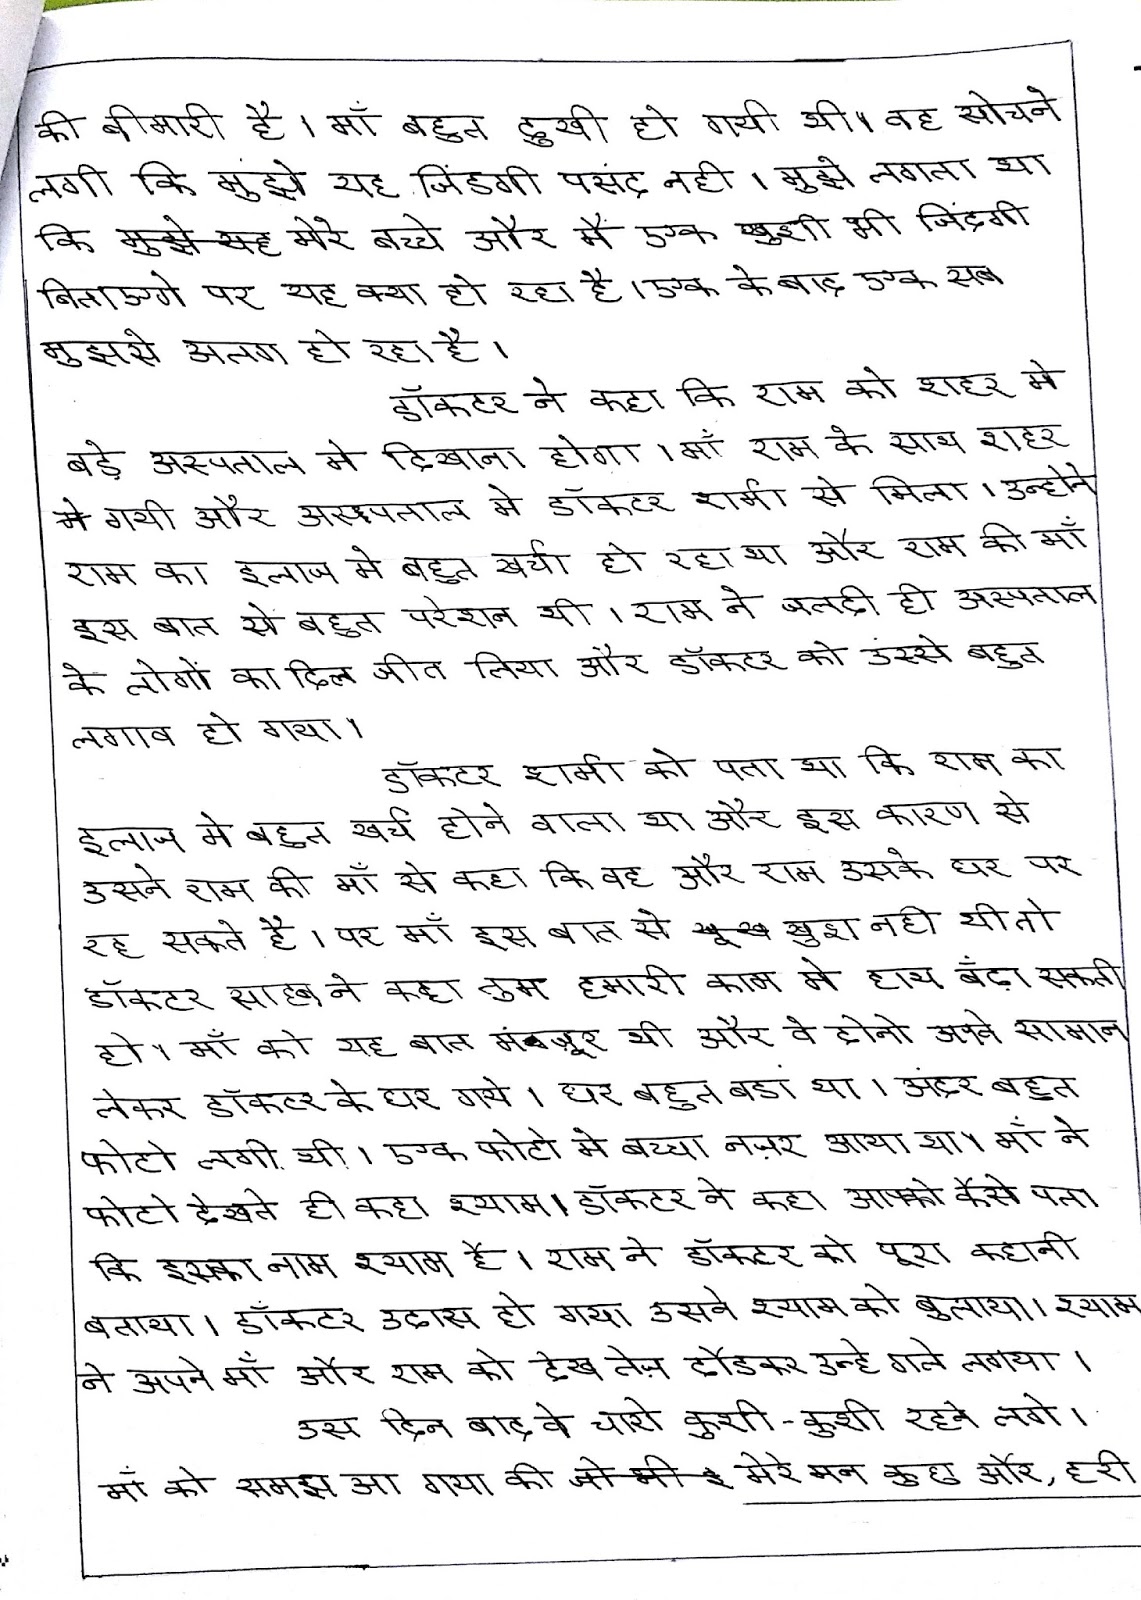 की बीमारी है । माँ बहुत दुखी हो गयी थी। वह सोचने
लगी कि मुंझे यह जिंडगी पसंद नही । मुझे लगता था
कि मुझे यह मेरे बच्चे और मैं एक खुशी भी जिंदगी
बिताएगे पर यह क्या हो रहा है । एक के बाद एक सब
मुझसे अलग हो रहा है ।
डॉकटर ने कहा कि राम को शहर मे
बड़े अस्पताल मे दिखाना होगा । माँ राम के साथ शहर
मे गयी और अस्पताल मे डॉकटर शर्मा से मिला । उन्होने
राम का इलाज मे बहुत खर्चा हो रहा था और राम की माँ
इस बात से बहुत परेशन थी । राम ने जलदी ही अस्पताल
के लोगों का दिल जीत लिया और डॉकटर को उंससे बहुत
लगाव हो गया।
डॉकटर शर्मा को पता था कि राम का
इलाज मे बहुत खर्च होने वाला था और इस कारण से
उसने राम की माँ से कहा कि वह और राम उसके घर पर
रह सकते है । पर माँ इस बात से खुश नही थी तो
डॉकटर साहब ने कहा तुम हमारी काम मे हाथ बँढ़ा सकती
हो। माँ को यह बात मंजूर थी और वे दोनो अपने सामान
लेकर डॉकटर के घर गये । घर बहुत बडां था । अंदर बहुत
फोटो लगी थी । एक फोटो मे बच्चा नज़र आया था। माँ ने
फोटो देखते ही कहा श्याम। डॉकटर ने कहा आपको कैसे पता
कि इसका नाम श्याम है । राम ने डॉकटर को पूरा कहानी
बताया । डॉकटर उदास हो गया उसने श्याम को बुलाया। श्याम
ने अपने माँ और राम को देख तेज़ दौडकर उन्हे गले लगया ।
उस दिन बाद वे चारो कुशी - कुशी रहने लगे ।
माँ को समझ आ गया की जो भी इ मेरे मन कुछ और, हरी